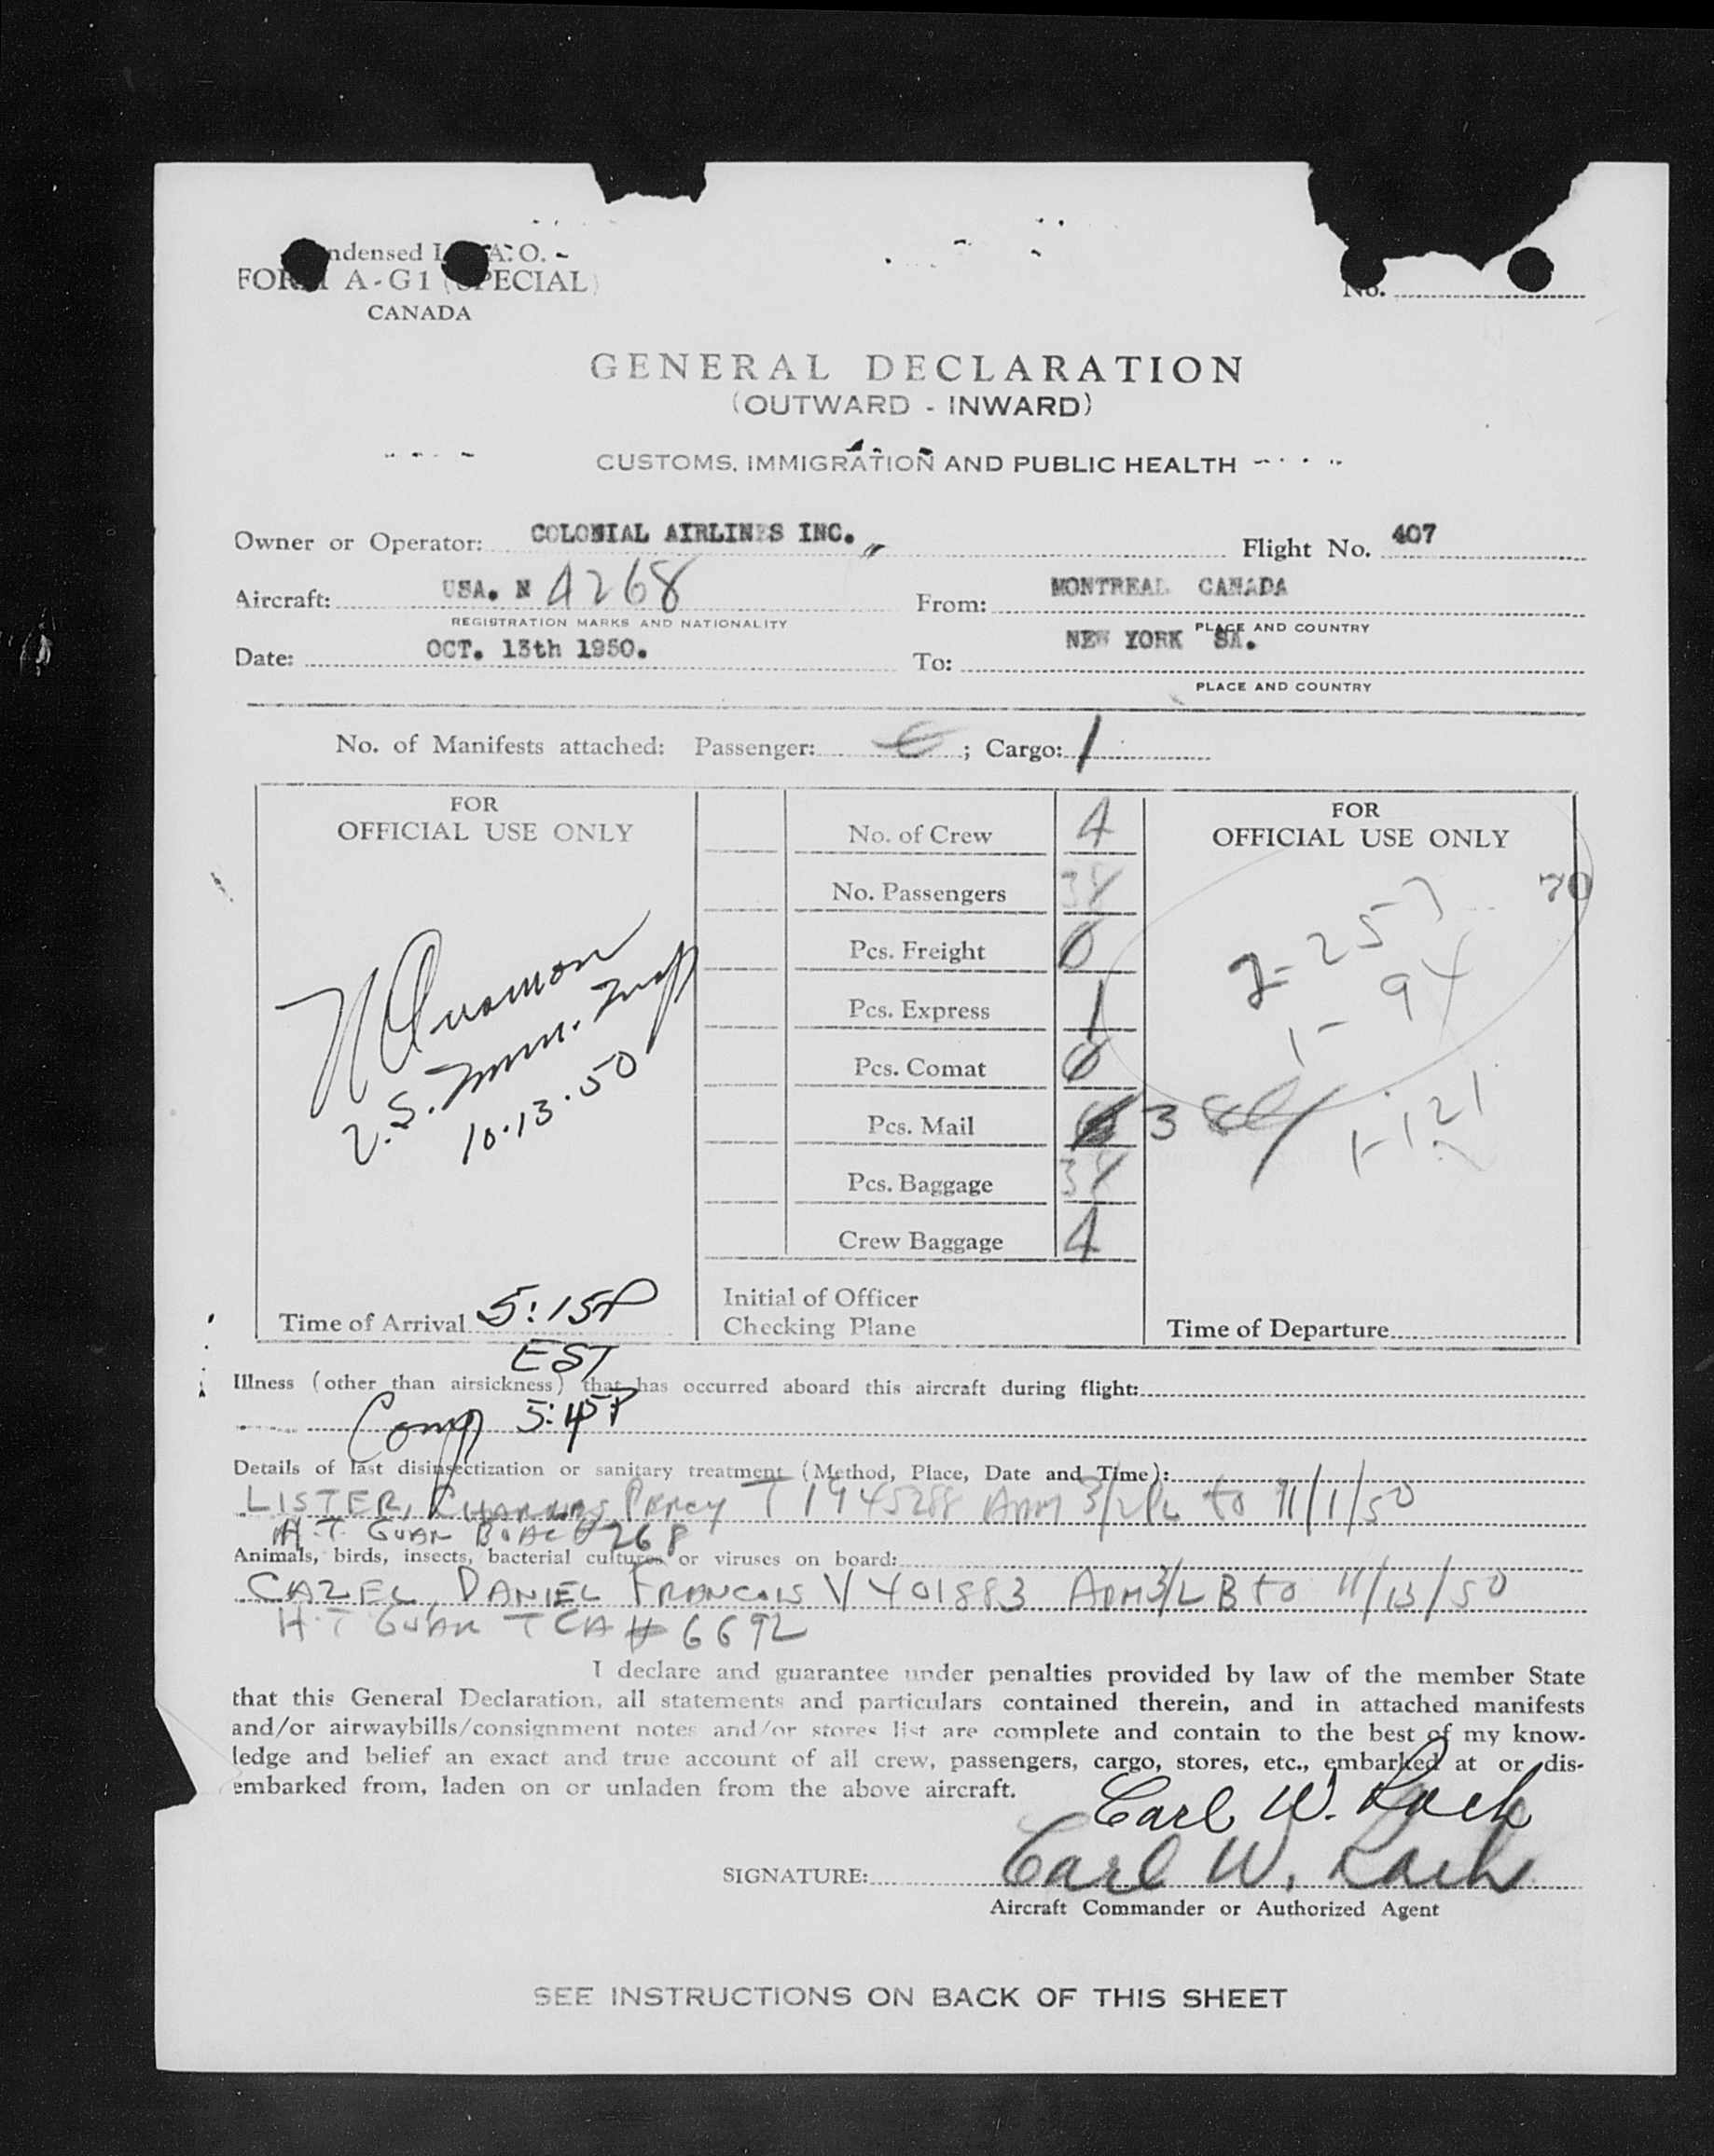 ndensed I A. O.
FORM A-G1 (SPECIAL)
CANADA
No.
GENERAL DECLARATION
(OUTWARD - INWARD)
CUSTOMS, IMMIGRATION AND PUBLIC HEALTH
Owner or Operator: COLONIAL AIRLINES INC. Flight No. 407
Aircraft: USA. N 4268 From: MONTREAL CANADA
REGISTRATION MARKS AND NATIONALITY PLACE AND COUNTRY
Date: OCT. 13th 1950. To: NEW YORK SA.
PLACE AND COUNTRY
No. of Manifests attached: Passenger: ; Cargo: 1
FOR
OFFICIAL USE ONLY
U.S. Imm. Insp
10.13.50
Time of Arrival 5:15P
EST
Comp 5:45P
No. of Crew 4
No. Passengers
Pcs. Freight 0
Pcs. Express 1
Pcs. Comat 0
Pcs. Mail 38
Pcs. Baggage
Crew Baggage 4
Initial of Officer
Checking Plane
FOR
OFFICIAL USE ONLY
70
2-257
1-94
1-121
Time of Departure
Illness (other than airsickness) that has occurred aboard this aircraft during flight:
Details of last disinsectization or sanitary treatment (Method, Place, Date and Time):
LISTER, CHARLES PERCY T 1945288 ADM to 11/1/50
H.T. GUAR BOAC 268
Animals, birds, insects, bacterial cultures or viruses on board:
CAZEL, DANIEL FRANCOIS V 401883 ADM 3/2 B to 11/13/50
H.T GUAR TCA # 6692
I declare and guarantee under penalties provided by law of the member State
that this General Declaration, all statements and particulars contained therein, and in attached manifests
and/or airwaybills/consignment notes and/or stores list are complete and contain to the best of my know-
ledge and belief an exact and true account of all crew, passengers, cargo, stores, etc., embarked at or dis-
embarked from, laden on or unladen from the above aircraft.
Carl W. Koch
SIGNATURE: Carl W. Koch
Aircraft Commander or Authorized Agent
SEE INSTRUCTIONS ON BACK OF THIS SHEET